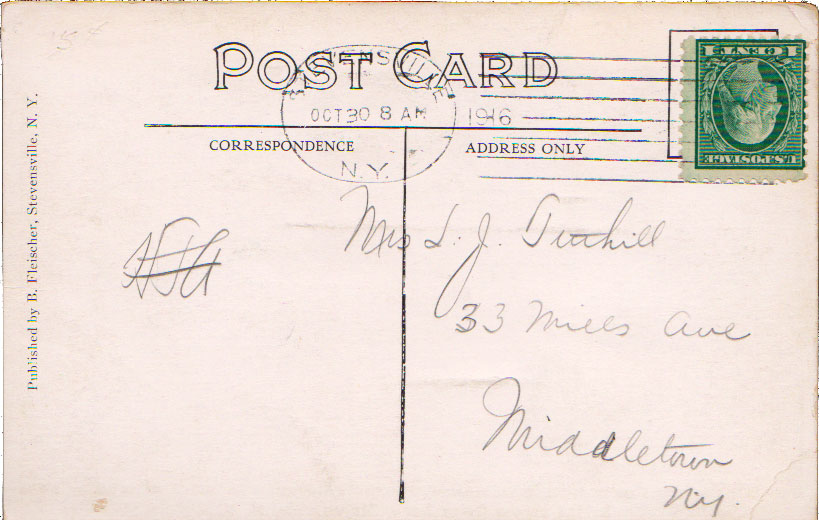 POST CARD
STEVENSVILLE
OCT 30 8 AM
1916
N.Y.
1 CENT 1
U.S. POSTAGE
CORRESPONDENCE
ADDRESS ONLY
Published by B. Fleischer, Stevensville, N. Y.
Mrs L. J. Tuthill
33 Mills Ave
Middletown
N.y.